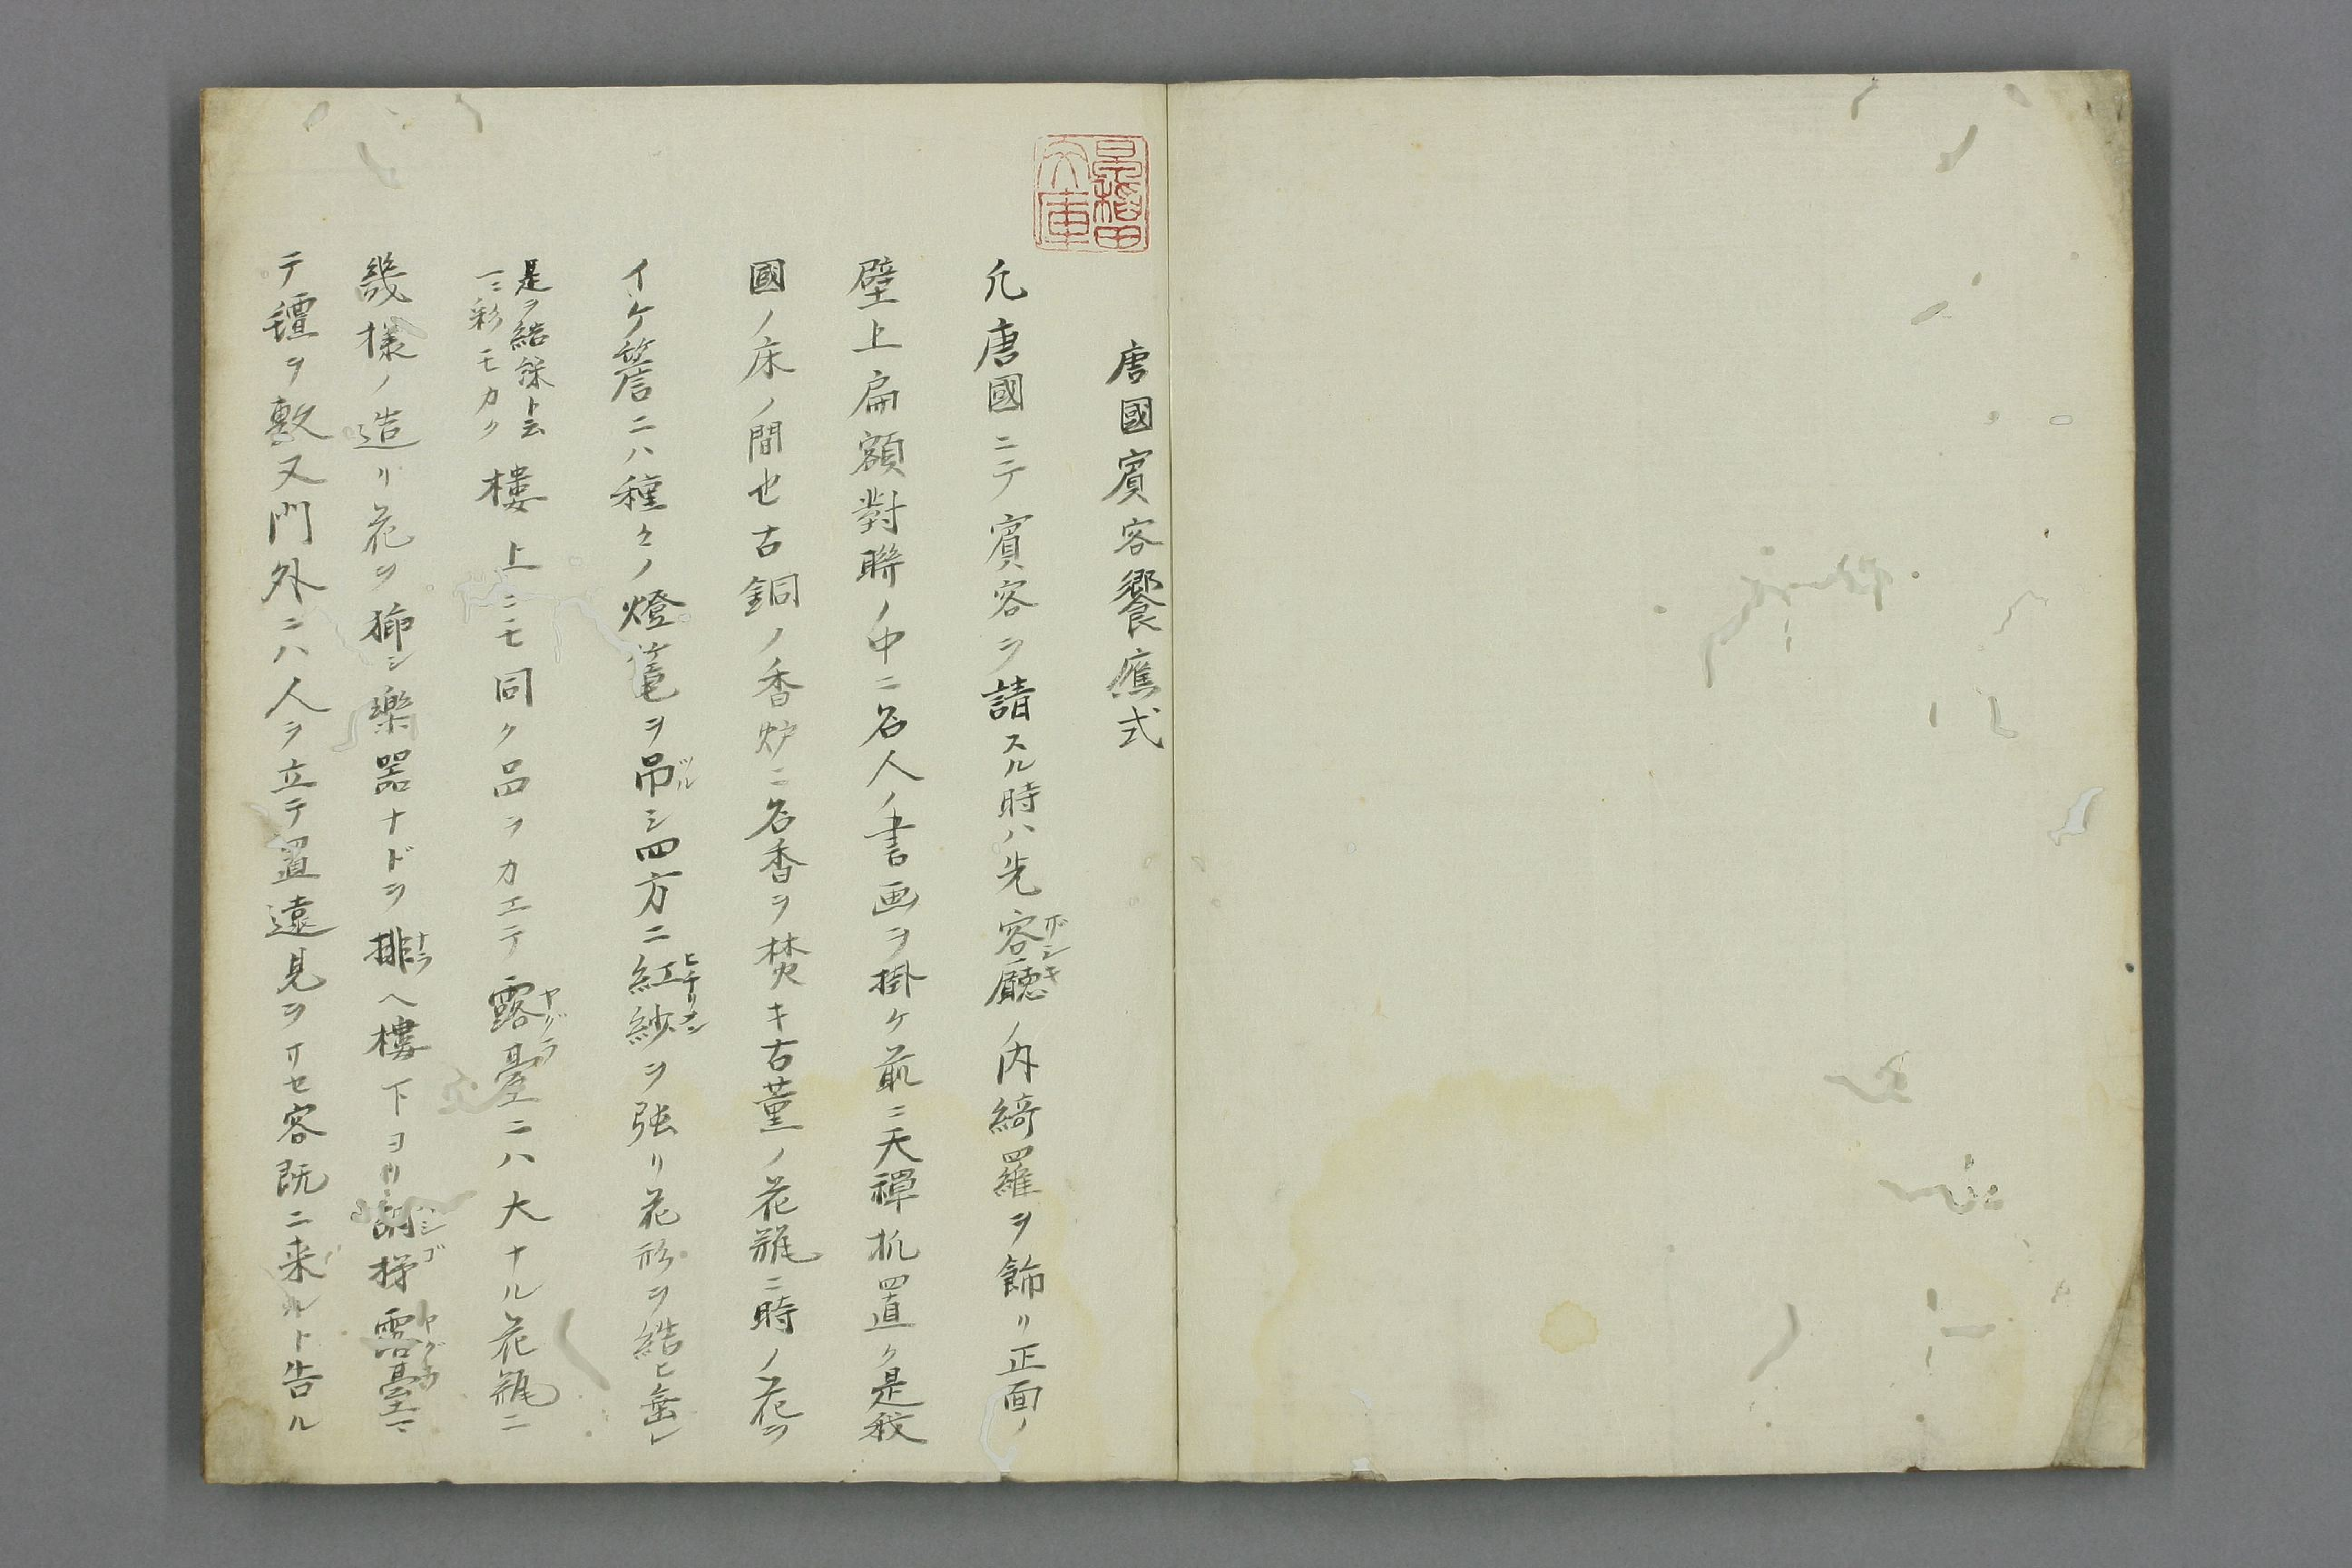 唐國賓客饗應式
凢唐國ニテ賓客ヲ請スル時ハ先客廳ノ内綺羅ヲ飾リ正面ノ
ザシキ
壁上扁額對聯ノ中ニ名人ノ書画ヲ掛ケ前ニ天禪机置ク是我
國ノ床ノ間也古銅ノ香炉ニ名香ヲ焚キ古董ノ花瓶ニ時ノ花ヲ
イケ簷ニハ種々ノ燈篭ヲ吊シ四方ニ紅紗ヲ張リ花形ヲ結ヒ垂レ
ツル
ヒヂリメン
是ヲ結綵ト云
一ニ彩モカク
樓上ニモ同ク品ヲカエテ露臺ニハ大ナル花瓶ニ
ヤグラ
幾様ノ造リ花ヲ挿シ樂器ナドヲ排ヘ樓下ヨリ梯露臺マ
ナラ
ハシゴ
ヤグラ
テ氊ヲ敷又門外ニハ人ヲ立テ置遠見ヲサセ客既ニ来ルト告ル
早稲田文庫